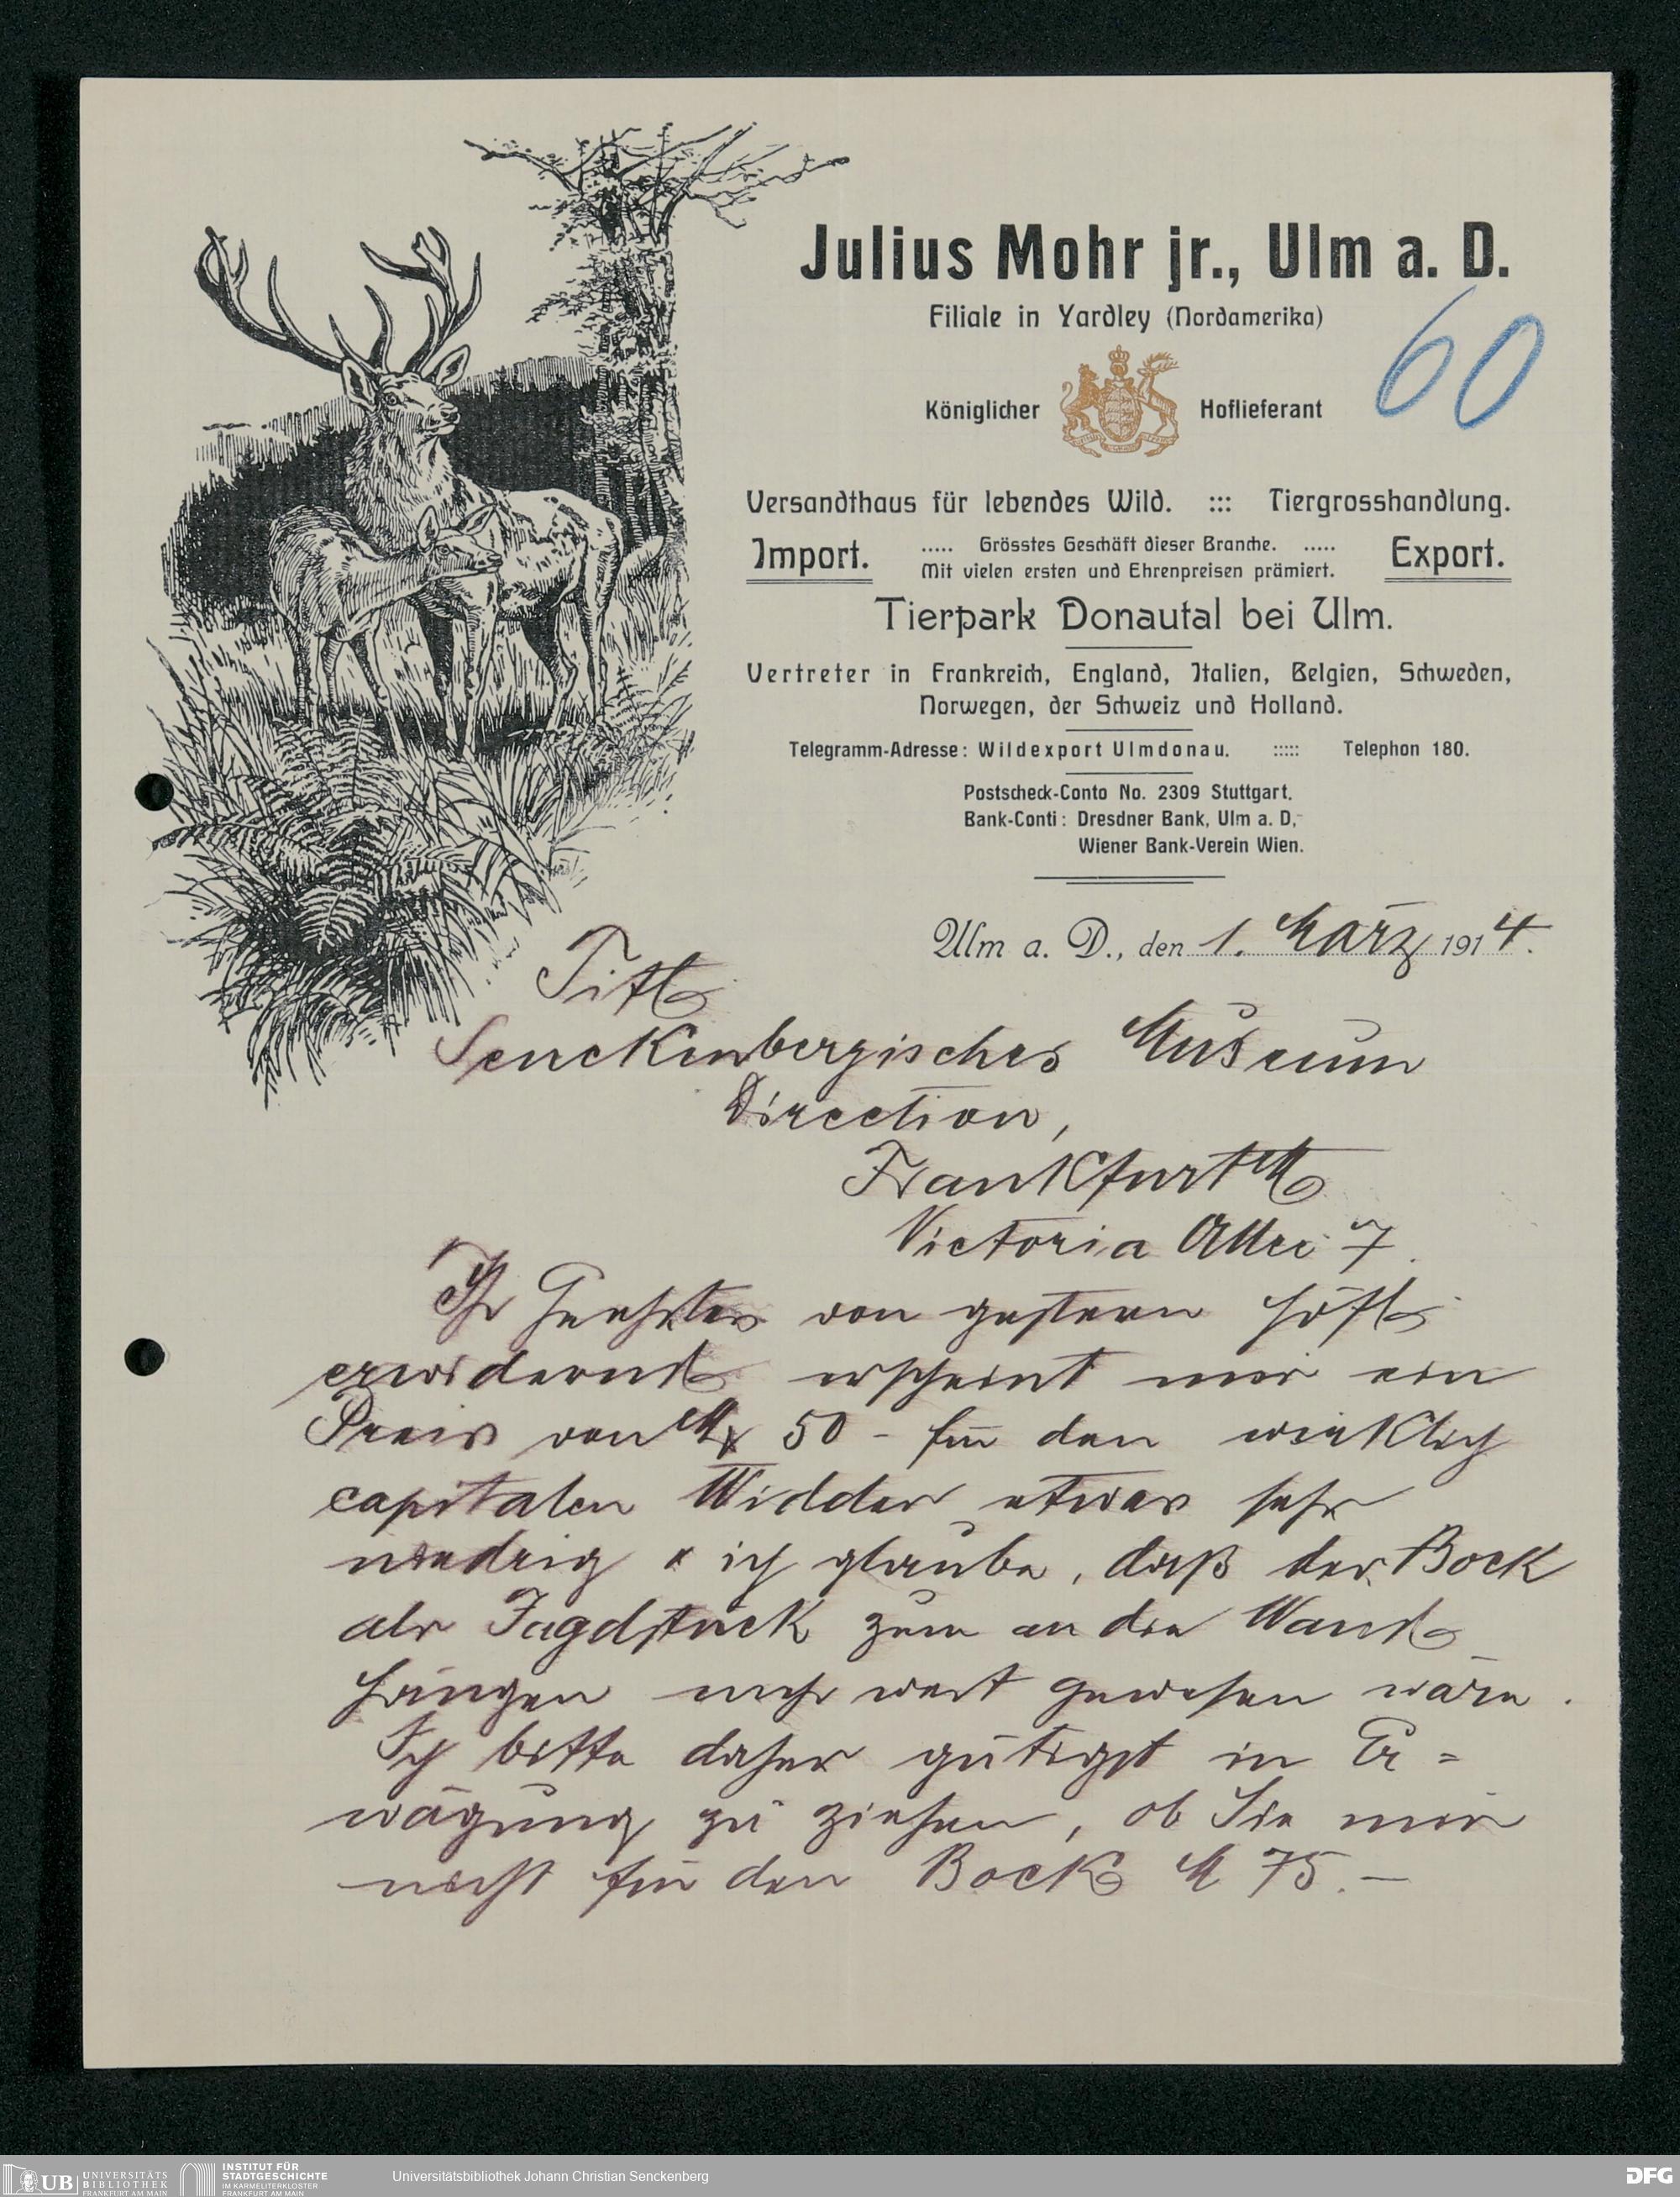 Julius Mohr jr., Ulm a. D.
Filiale in Yardley (Nordamerika)
60
Königlicher Hoflieferant
Versandthaus für lebendes Wild. ::: Tiergrosshandlung.
Import. ..... Grösstes Geschäft dieser Branche. ..... Export.
Mit vielen ersten und Ehrenpreisen prämiert.
Tierpark Donautal bei Ulm.
Vertreter in Frankreich, England, Italien, Belgien, Schweden,
Norwegen, der Schweiz und Holland.
Telegramm-Adresse: Wildexport Ulmdonau. ::::: Telephon 180.
Postscheck-Conto No. 2309 Stuttgart.
Bank-Conti: Dresdner Bank, Ulm a. D,
Wiener Bank-Verein Wien.
Ulm a. D., den 1. März 1914.
Titl
Senckenbergisches Museum
Direction,
Frankfurt M
Victoria Allee 7.
Ihr Geehrtes von gestern höfl
erwidernd erscheint mir ein
Preis von M 50 - für den wirklich
capitalen Widder etwas sehr
niedrig & ich glaube, daß der Bock
als Jagdstück zum an die Wand
hängen mehr wert gewesen wäre.
Ich bitte daher gütigst in Er=
wägung zu ziehen, ob Sie mir
nicht für den Bock M 75.—
UB UNIVERSITÄTS
BIBLIOTHEK
FRANKFURT AM MAIN
INSTITUT FÜR
STADTGESCHICHTE
IM KARMELITERKLOSTER
FRANKFURT AM MAIN
Universitätsbibliothek Johann Christian Senckenberg
DFG